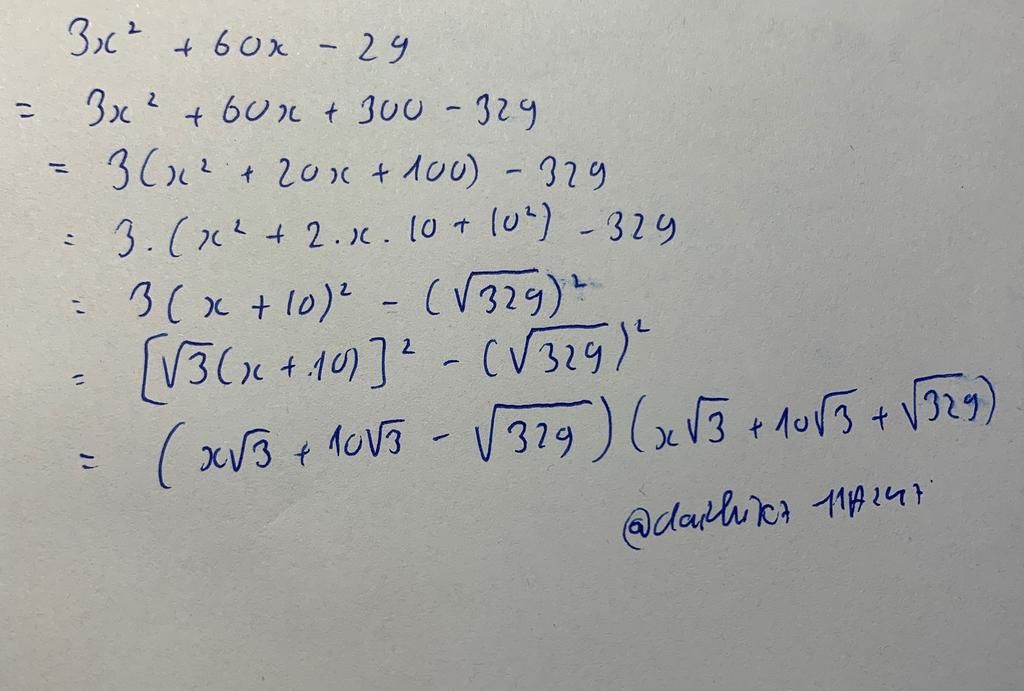 3x² + 60x - 29
= 3x² + 60x + 300 - 329
= 3(x² + 20x + 100) - 329
= 3.(x² + 2.x.10 + 10²) - 329
= 3(x + 10)² - (√329)²
= [√3(x + 10)]² - (√329)²
= (x√3 + 10√3 - √329)(x√3 + 10√3 + √329)